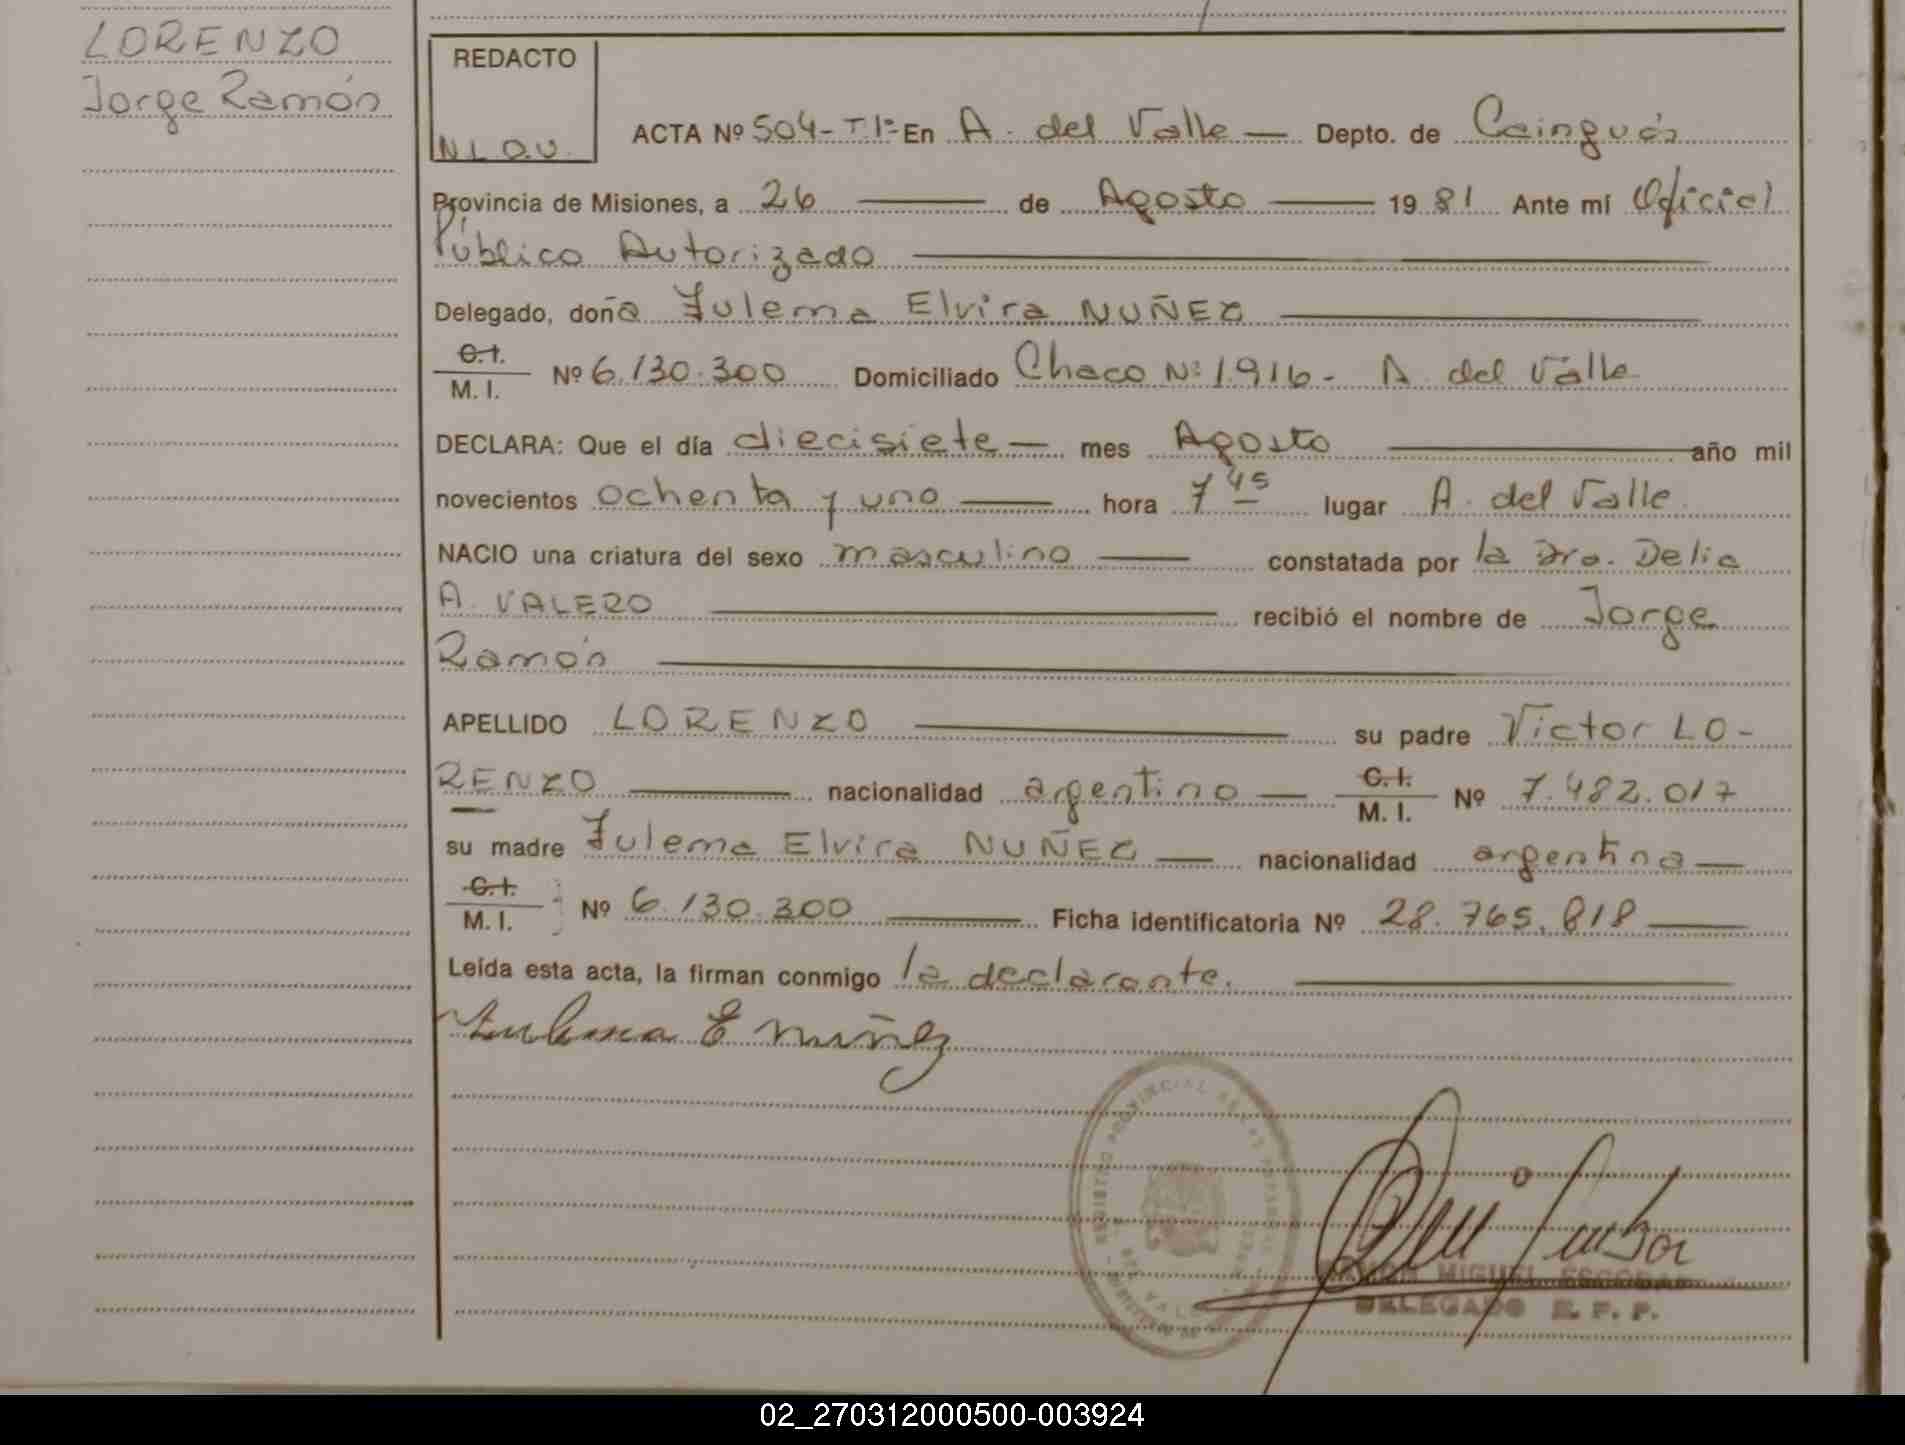 LORENZO
Jorge Ramón
REDACTO
N.L.O.U.
ACTA Nº 504-T.1º- En A. del Valle — Depto. de Cainguás
Provincia de Misiones, a 26 — de Agosto — 1981 Ante mí Oficial
Público Autorizado
Delegado, doña Zulema Elvira NUÑEZ
C.I.
M. I. Nº 6.130.300 Domiciliado Chaco Nº 1916 - A. del Valle
DECLARA: Que el día diecisiete — mes Agosto — año mil
novecientos ochenta y uno — hora 7 45 lugar A. del Valle
NACIO una criatura del sexo masculino — constatada por la Dra. Delia
A. VALERO — recibió el nombre de Jorge
Ramón
APELLIDO LORENZO — su padre Víctor LO-
RENZO — nacionalidad argentino — C.I. M. I. Nº 7.482.017
su madre Zulema Elvira NUÑEZ — nacionalidad argentina —
C.I.
M. I. Nº 6.130.300 — Ficha identificatoria Nº 28.765.818 —
Leída esta acta, la firman conmigo la declarante.
Zulema E Nuñez
REGISTRO PROVINCIAL
RAMON MIGUEL ESCOBAR
DELEGADO R. P. P.
02_270312000500-003924